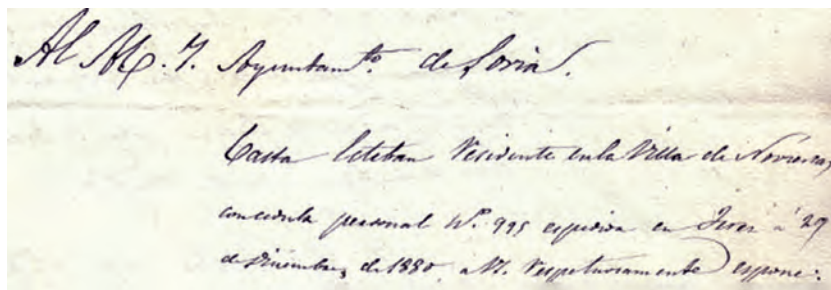 Al M. I. Ayuntamto. de Soria.
Casta Esteban Residente en la Villa de Noviercas,
con cedula personal Nº. 995 espedida en á 29
de Diciembre, de 1880, a V. Respetuosamente espone: